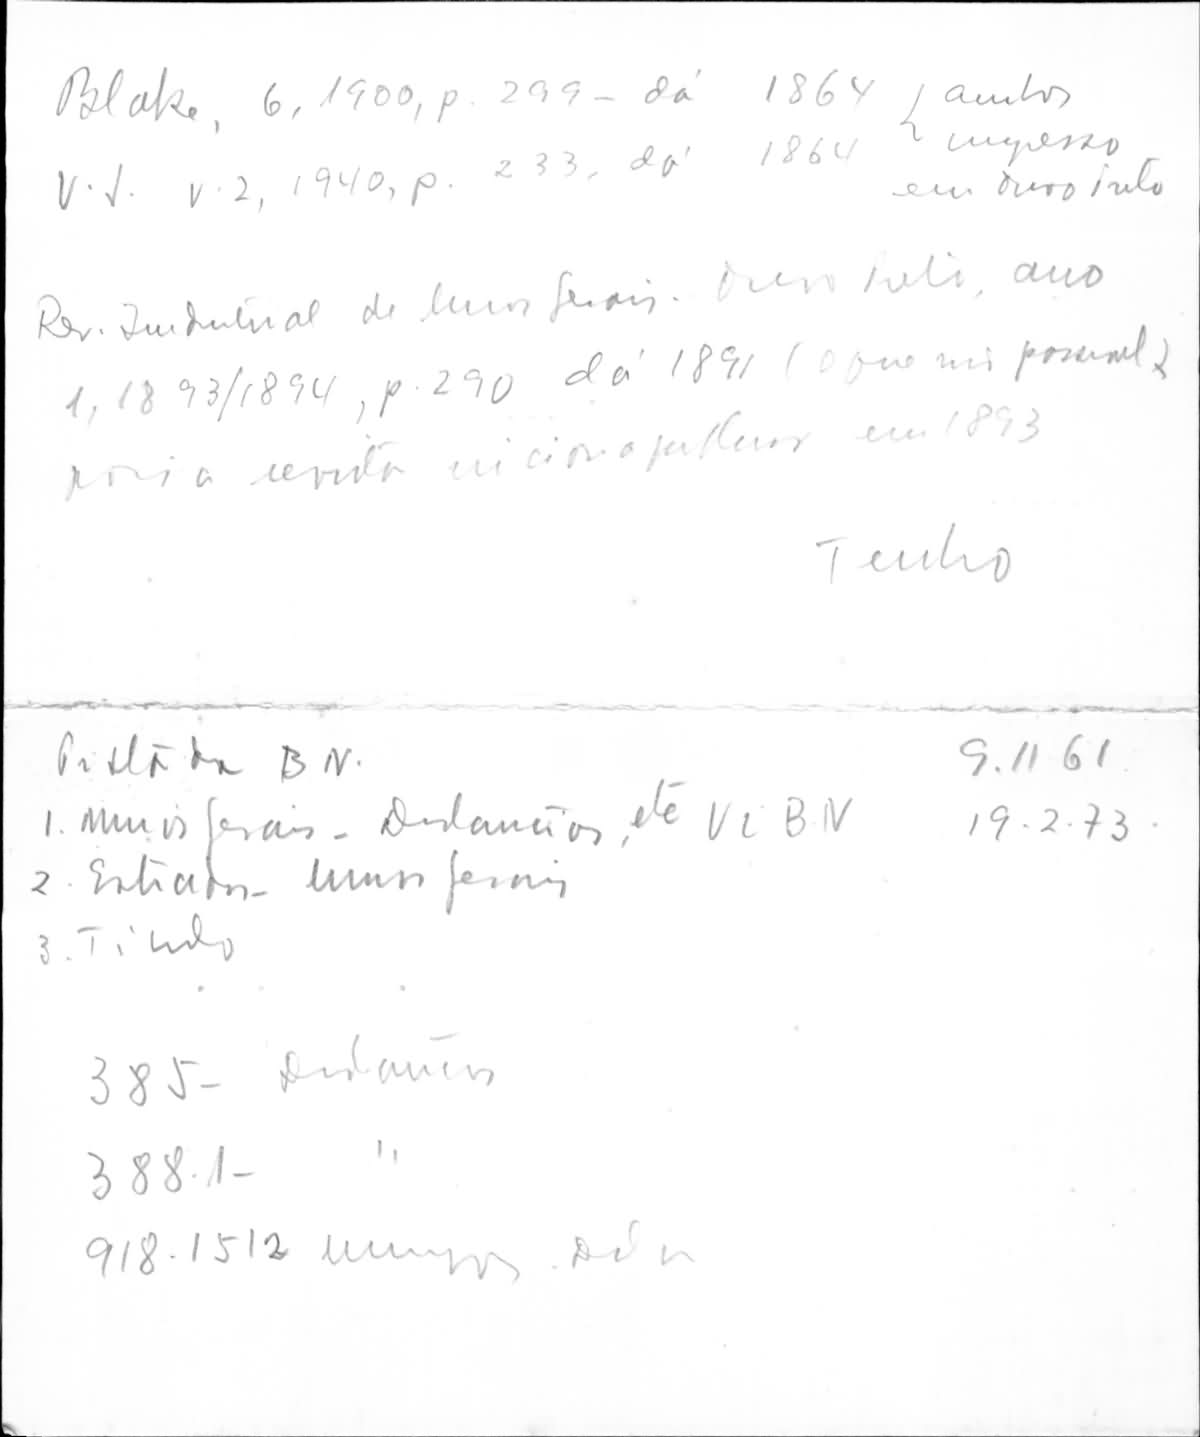 Blake, 6, 1900, p. 299 - dá 1864 { ambos
V.S. v.2, 1940, p. 233, dá 1864 impresso
em Ouro Preto
Rev. Industrial de Minas Gerais. Ouro Preto, ano
1, 1893/1894, p. 290 dá 1891 (o que
pois a revista em 1893
Tenho
BN. 9.11 61
1. Minas Gerais - Distancias, etc Vi BN 19.2.73.
2. Estradas - Minas Gerais
3. Titulo
385 - Distancias
388.1 - "
918.1512